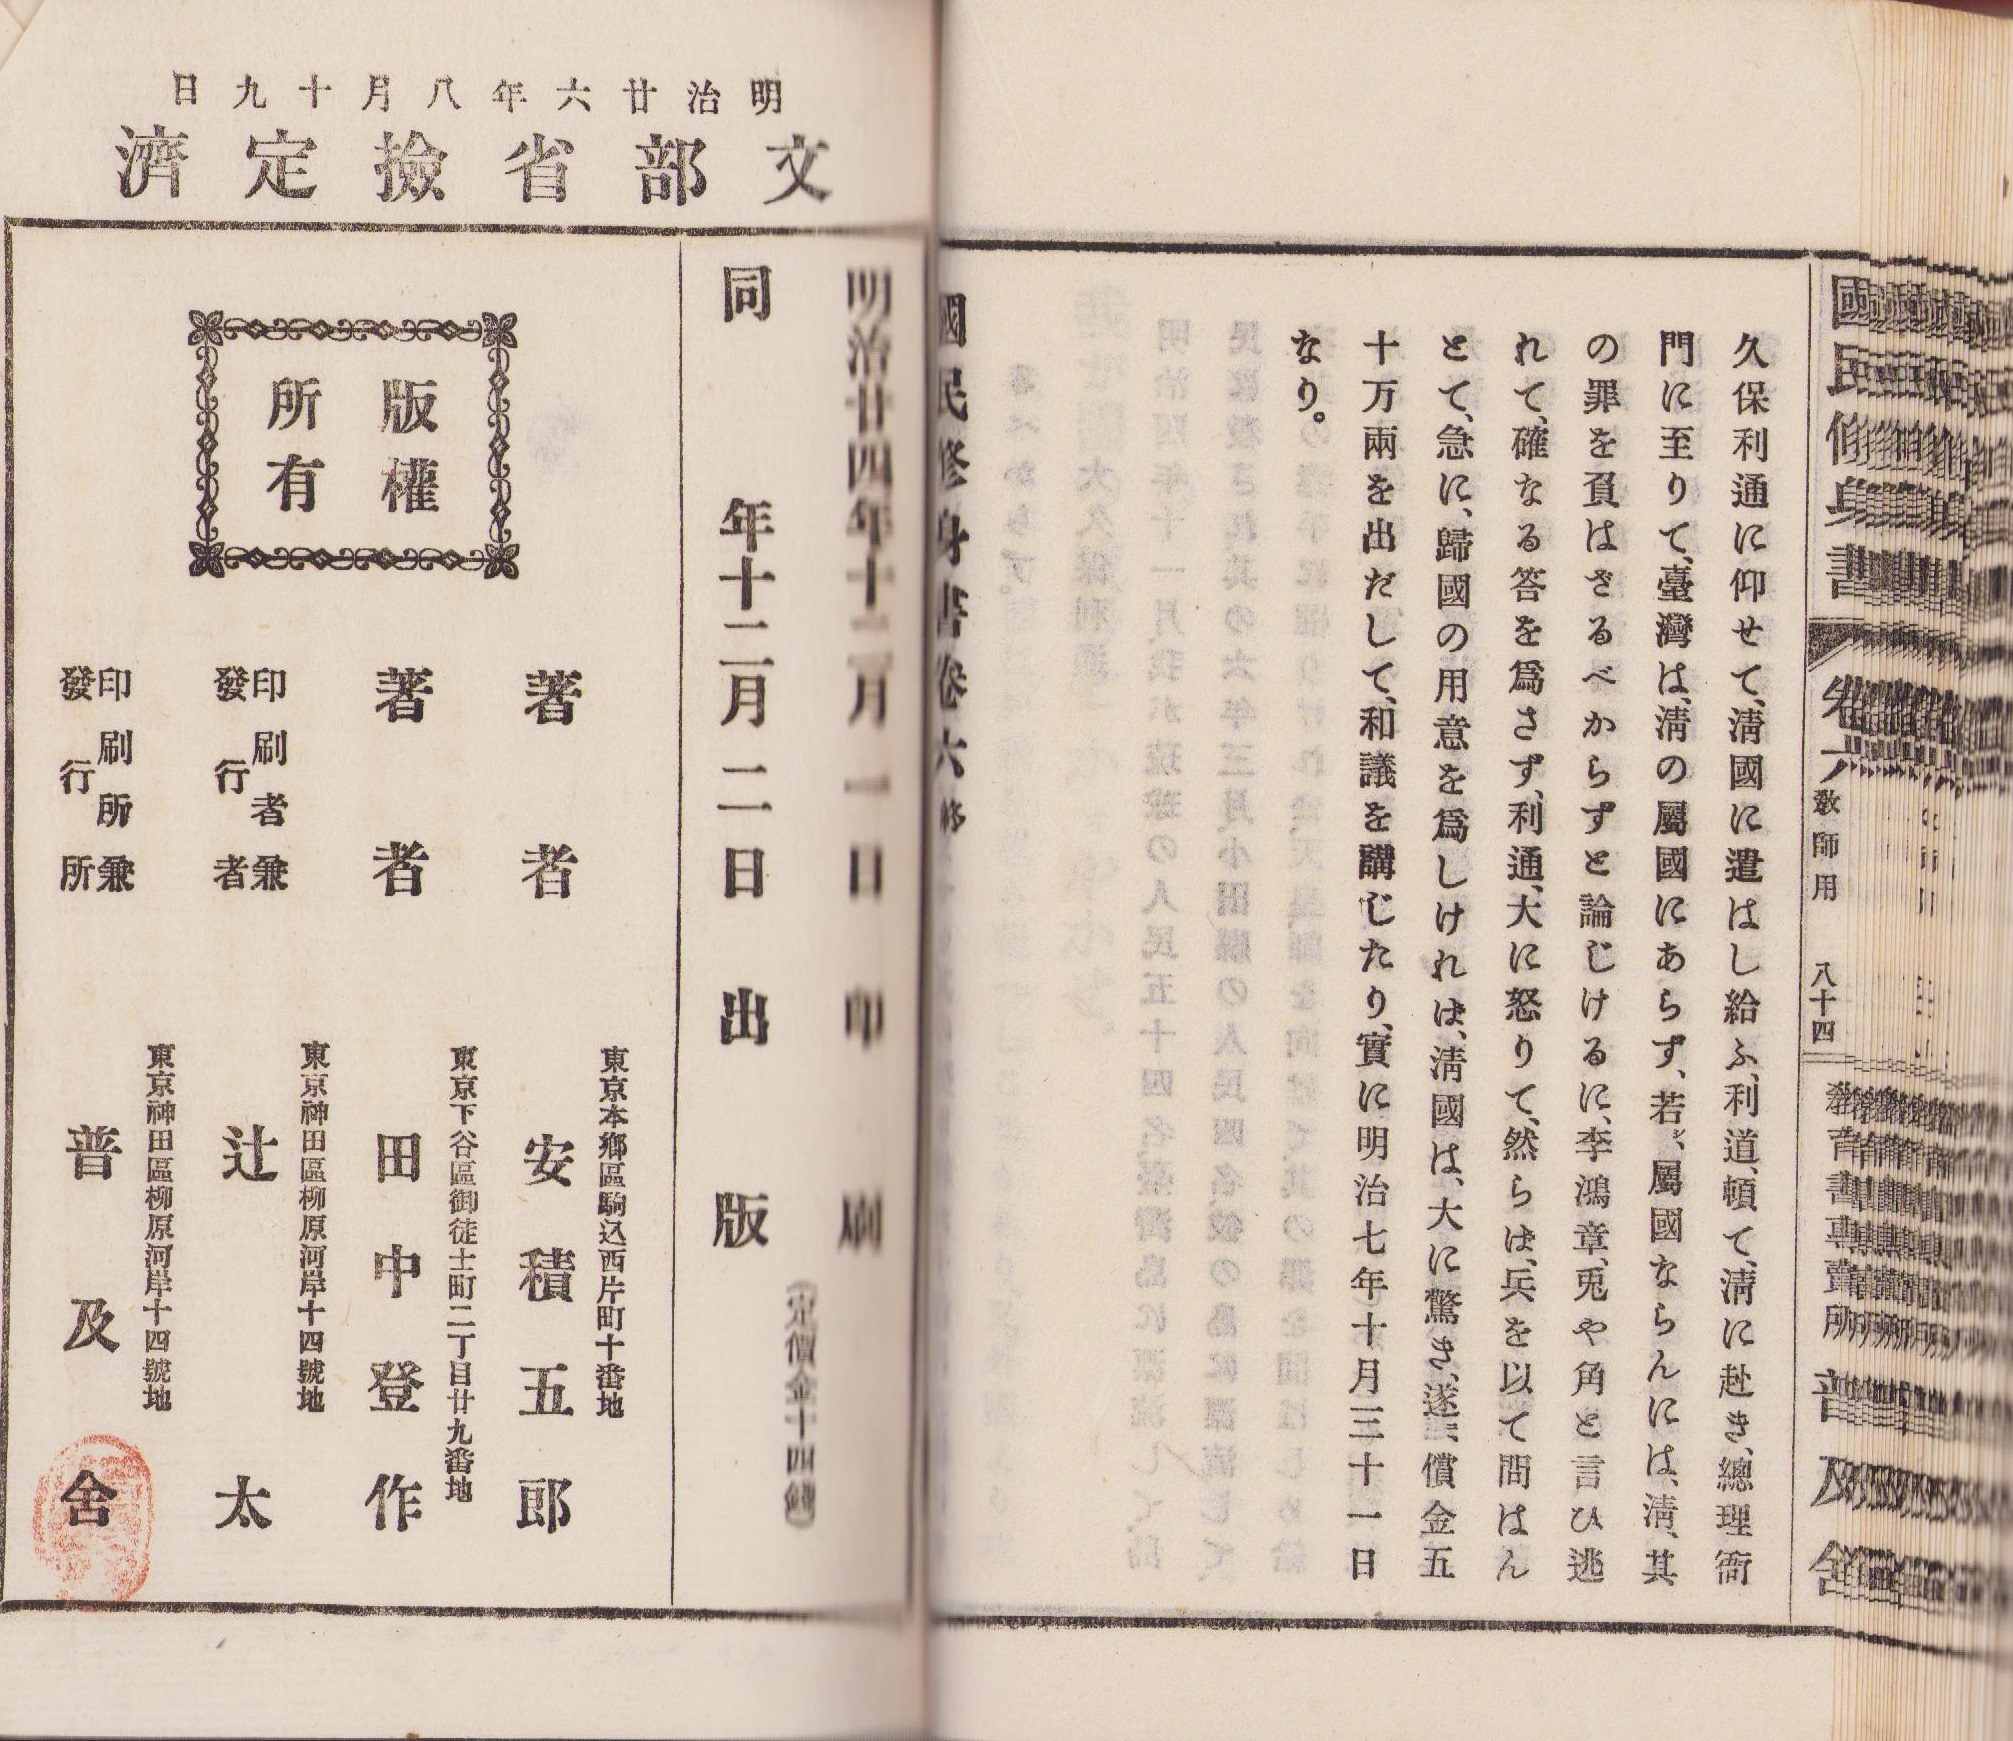 國民修身書
卷六
敎師用
八十四
敎育書專賣所
普及舍
久保利通に仰せて、淸國に遣はし給ふ、利道、頓て、淸に赴き、總理衙
門に至りて、臺灣は、淸の屬國にあらず、若、屬國ならんには、淸、其
の罪を負はざるべからずと論じけるに、李鴻章、兎や角と言ひ逃
れて、確なる答を爲さず、利通、大に怒りて、然らは、兵を以て問はん
とて、急に、歸國の用意を爲しけれは、淸國は、大に驚き、遂に、償金五
十万兩を出だして、和議を講じたり、實に明治七年十月三十一日
なり。
國民修身書卷六終
明治廿六年八月十九日
文部省撿定濟
明治廿四年十二月一日印刷
同年十二月二日出版
(定價金十四錢)
東京本鄕區駒込西片町十番地
著者 安積五郎
東京下谷區御徒士町二丁目廿九番地
著者 田中登作
東京神田區柳原河岸十四號地
印刷者兼
發行者
辻太
東京神田區柳原河岸十四號地
印刷所兼
發行所
普及舍
版權
所有